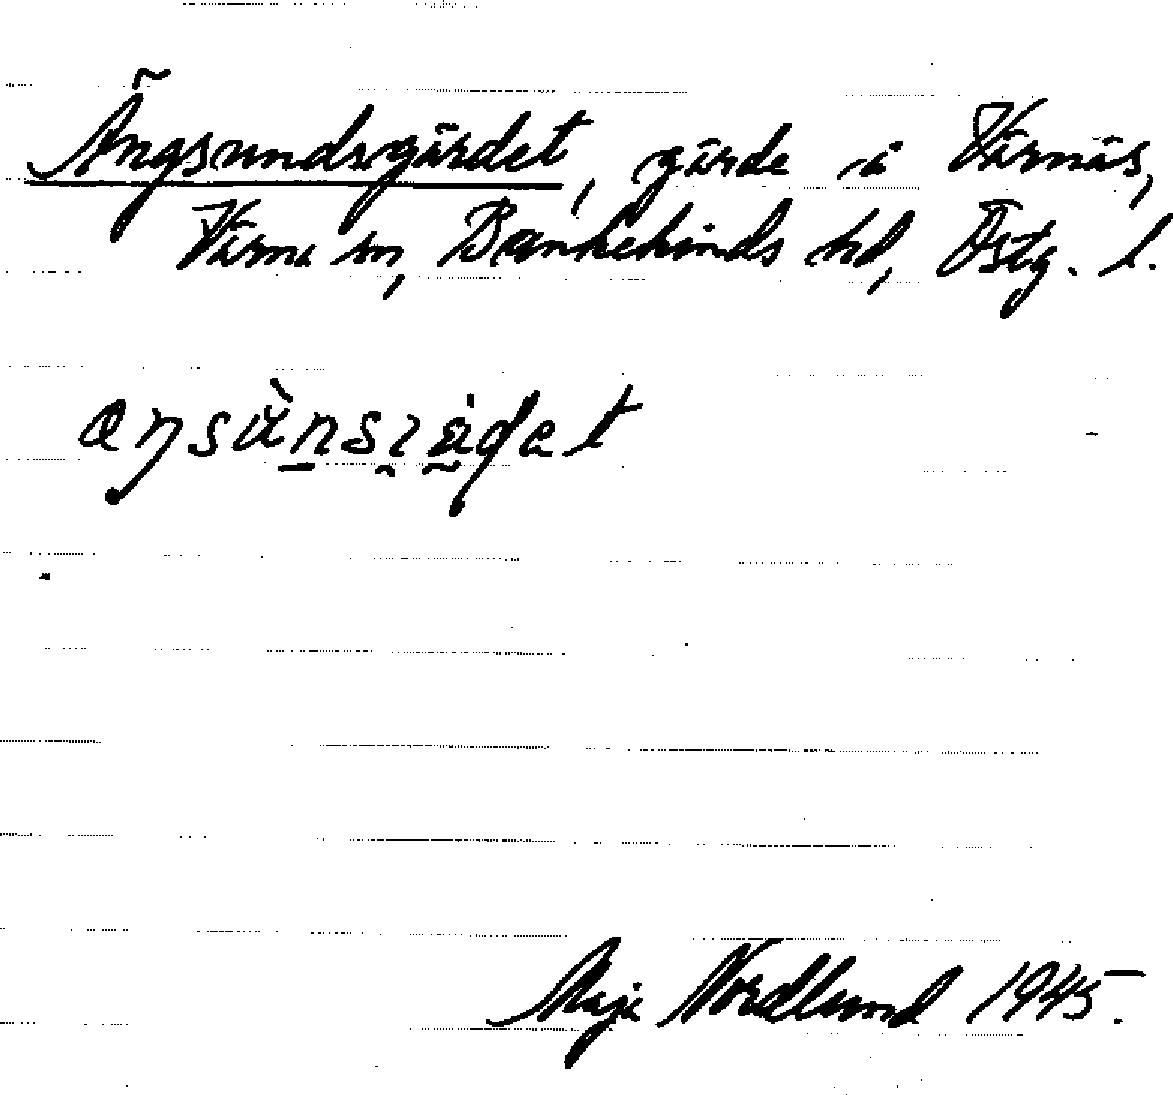 Ängsundsgärdet, gärde i Värnäs,
Värna sn, Bankekinds hd, Östg. l.
Maja Nordlund 1945.